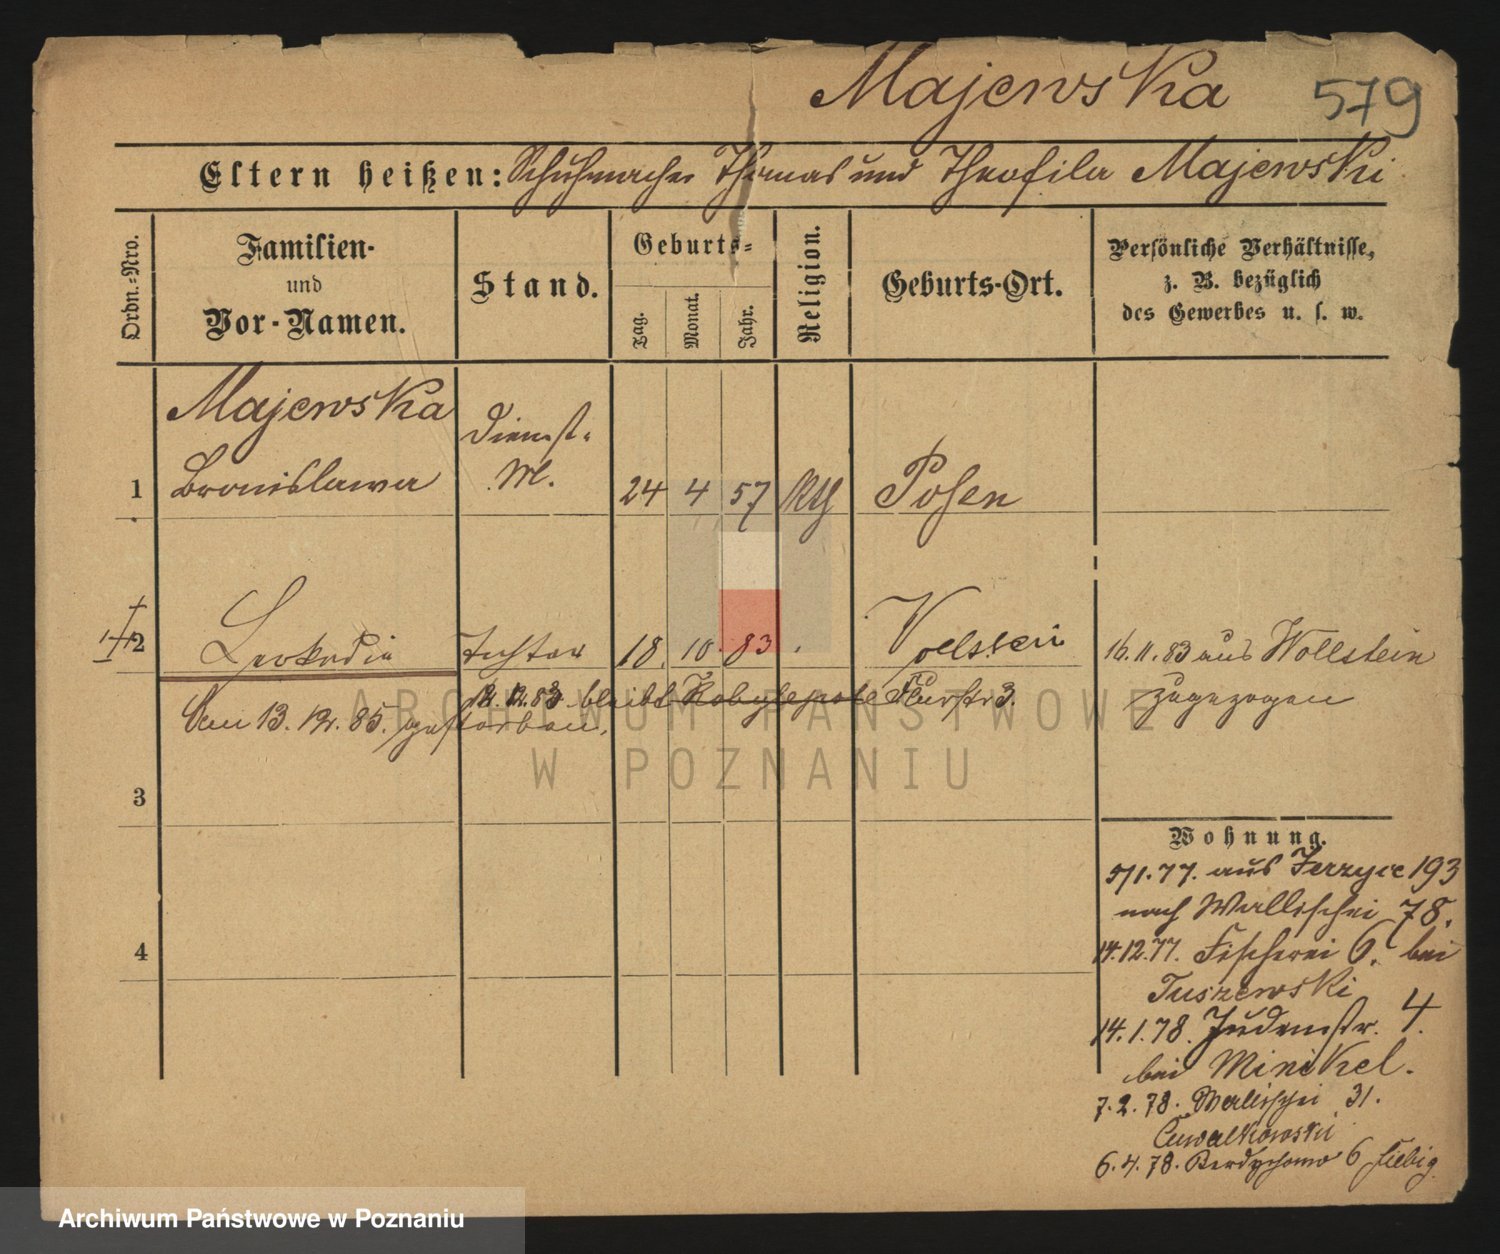 Majewska 579
Eltern heißen: Schuhmacher Thomas und Theofila Majewski
Ordn.-Nro.
Familien-
und
Vor-Namen.
Stand.
Geburts-
Tag.
Monat.
Jahr.
Religion.
Geburts-Ort.
Persönliche Verhältnisse,
z. B. bezüglich
des Gewerbes u. s. w.
Majewska
Dienst-
1 Bronislawa M. 24 4 57 Kth Posen
2 Leokadia Tochter 18. 10. 83 Wollstein 16.11.83 aus Wollstein
zugezogen
12.12.83 bleibt Kobylepole Flurstr 3.
Am 13.12.85. gestorben.
3
4
Wohnung.
5/1.77. aus Jerzyce 193
nach Wallischei 78.
14.12.77. Fischerei 6. bei
Tuszewski
14.1.78. Judenstr. 4.
bei Minikel.
7.2.78. Wallischei 31.
6.4.78. Berdychowo 6 Liebig
ARCHIWUM PAŃSTWOWE
W POZNANIU
Archiwum Państwowe w Poznaniu